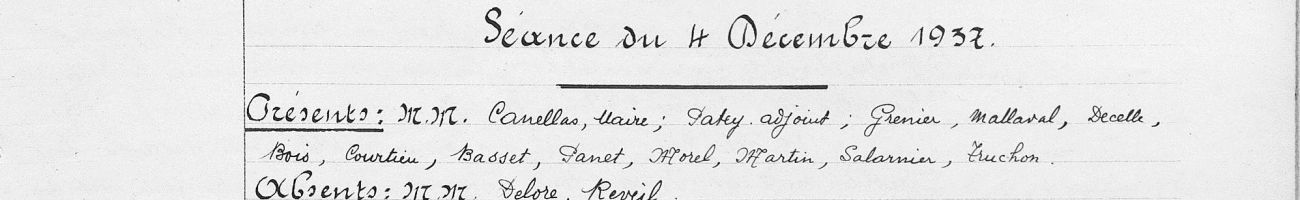 Séance du 4 Décembre 1937.
Présents: M.M. Canellas, Maire; Patey. adjoint; Grenier, Mallaval, Decelle,
Bois, Courtieu, Basset, Panet, Morel, Martin, Salarnier, Truchon.
Absents: M.M. Delore, Reveil.